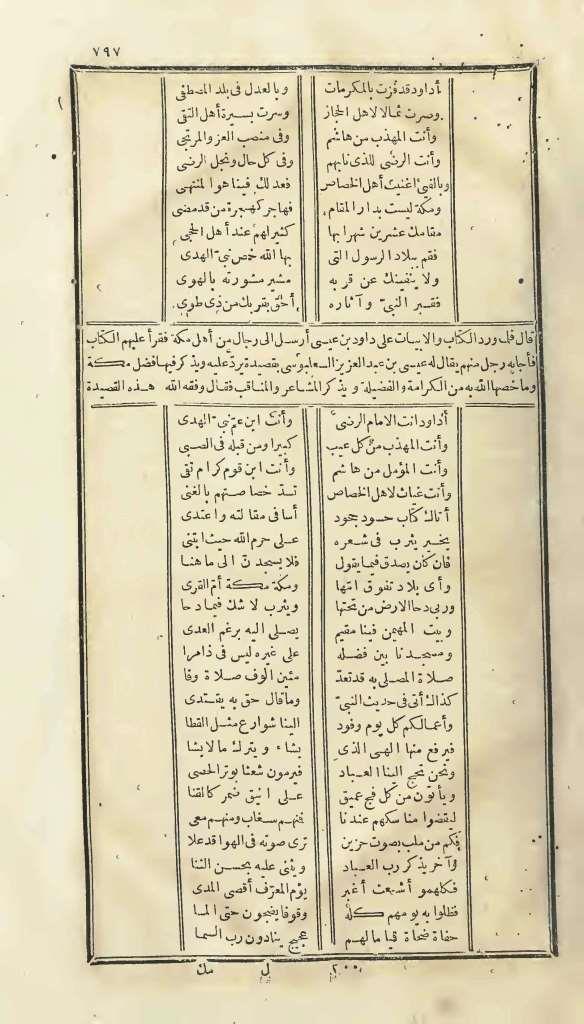 ٧٩٧
أداود قد فزت بالمكرمات وبالعدل في بلد المصطفى
وصرت ثمالا لاهل الحجاز وسرت بسيرة أهل التقى
وأنت المهذب من هاشم وفي منصب العز والمرتجى
وأنت الرضى للذي نابهم وفي كل حال ونجل الرضى
وبالفئ أغنيت أهل الخصاص فعدلك فينا هو المنتهى
ومكة ليست بدار المقام فهاجر كهجرة من قد مضى
مقامك عشرين شهرا بها كثير لهم عند أهل الحجى
فقم ببلاد الرسول التي بها الله خص نبي الهدى
ولا ينفينك عن قربه مشير مشورته بالهوى
فقبر النبي وآثاره أحق بقربك من ذي طوى
قال فلما ورد الكتاب والابيات على داود بن عيسى أرسل الى رجال من أهل مكة فقرأ عليهم الكتاب
فأجابه رجل منهم يقال له عيسى بن عبد العزيز السعلبوسى بقصيدة يرد عليه ويذكر فيها فضل مكة
وما خصها الله به من الكرامة والفضيلة ويذكر المشاعر والمناقب فقال وفقه الله هذه القصيدة
أداود انت الامام الرضى وأنت ابن عم نبي الهدى
وأنت المهذب من كل عيب كبيرا ومن قبله في الصبى
وأنت المؤمل من هاشم وأنت ابن قوم كرام تقى
وأنت غياث لاهل الخصاص تسد خصاصتهم بالغنى
أتاك كتاب حسود جحود أسا في مقالته واعتدى
يخير يثرب في شعره على حرم الله حيث ابتنى
فان كان يصدق فيما يقول فلا يسجدن الى ما هنا
وأي بلاد تفوق امها ومكة مكة أم القرى
وربي دحا الارض من تحتها ويثرب لا شك فيما دحا
وبيت المهيمن فينا مقيم يصلى اليه برغم العدى
ومسجدنا بين فضله على غيره ليس في ذا مرا
صلاة المصلى به قد تعد مئين ألوف صلاة وفا
كذاك أتى في حديث النبي وما قال حق به يقتدى
وأعمالكم كل يوم وفود الينا شوارع مثل القطا
فيرفع منها الهى الذي يشاء ويترك مالا يشا
ونحن تحج الينا العباد فيرمون شعثا بوتر الحصى
ويأتون من كل فج عميق على أنيق ضمر كالقنا
لتقضوا مناسكهم عندنا فمنهم سغاب ومنهم معى
فكم من ملب بصوت حزين ترى صوته في الهوا قد علا
وآخر يذكر رب العباد ويثنى عليه بحسن الثنا
فكلهمو أشعث أغبر يؤم المعرف أقصى المدى
فظلوا به يومهم كله وقوفا يضجون حتى المسا
حفاة ضحاة قياما لهم عجيج ينادون رب السما
٢٠٠ ل مك